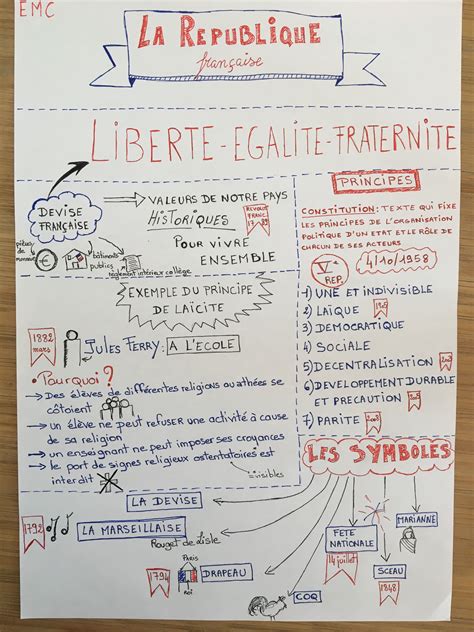 EMC
LA REPUBLIQUE
française
LIBERTE - EGALITE - FRATERNITE
DEVISE
FRANÇAISE
pièces de monnaie
bâtiments publics
règlement intérieur collège
VALEURS DE NOTRE PAYS
HISTORIQUES
REVOLUT°
FRANC.
1789
POUR VIVRE
ENSEMBLE
PRINCIPES
CONSTITUTION: TEXTE QUI FIXE
LES PRINCIPES DE L'ORGANISATION
POLITIQUE D'UN ETAT ET LE RÔLE DE
CHACUN DE SES ACTEURS
Ve
REP.
4/10/1958
1) UNE ET INDIVISIBLE
2) LAÏQUE
1905
3) DEMOCRATIQUE
4) SOCIALE
5) DECENTRALISATION
6) DEVELOPPEMENT DURABLE
ET PRECAUTION
7) PARITE
EXEMPLE DU PRINCIPE
DE LAÏCITE
1882
mars
JULES FERRY: A L'ECOLE
Pourquoi ?
→ Des élèves de différentes religions ou athées se
côtoient
→ un élève ne peut refuser une activité à cause
de sa religion
→ un enseignant ne peut imposer ses croyances
→ le port de signes religieux ostentatoires est
interdit
=visibles
LES SYMBOLES
LA DEVISE
1792
LA MARSEILLAISE
Rouget de Lisle
1794
Paris
Roi
DRAPEAU
COQ
FETE
NATIONALE
14 juillet
SCEAU
1848
MARIANNE